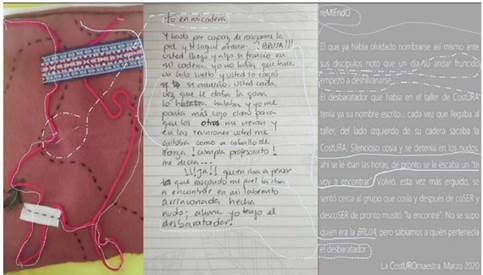 Ito en mi cadera
y usted llegó y algo se frunció en
mi cadera yo no sabía que tuve
un lado suelto y usted lo cogió
y se
vez que le daba la gana
lo halaba, y yo me
ponía más
que los otros me vieran y
en las reuniones usted me
¡cumpla profesorcito!
me decía...
¡¡¡JA!! quien iba a pensar
que rasgando mi piel la iba
a encontrar en mi laberinto
arrinconada, hecha
nudo; ahora yo tengo el
desbaratador.
reMIEndO
El que ya había olvidado nombrarse así mismo ante
sus discípulos notó que un día No andar fruncido
empezó a deshilvanarse.
El desbaratador que había en el taller de CostURA
tenía ya su nombre escrito... cada vez que llegaba al
taller, del lado izquierdo de su cadera sacaba la
CostURA. Silencioso cosía y se detenía en los nudos,
ahí se le iban las horas, de pronto se le escaba un "te
voy a encontrar". Volvió, esta vez más erguido, se
sentó cerca al grupo que cosía y después de coSER y
descoSER de pronto musitó "la encontré". No se supo
quien era la BRUJA, pero sabíamos a quién pertenecía
el desbaratador.
La CostUROmaestra. Marzo 2020